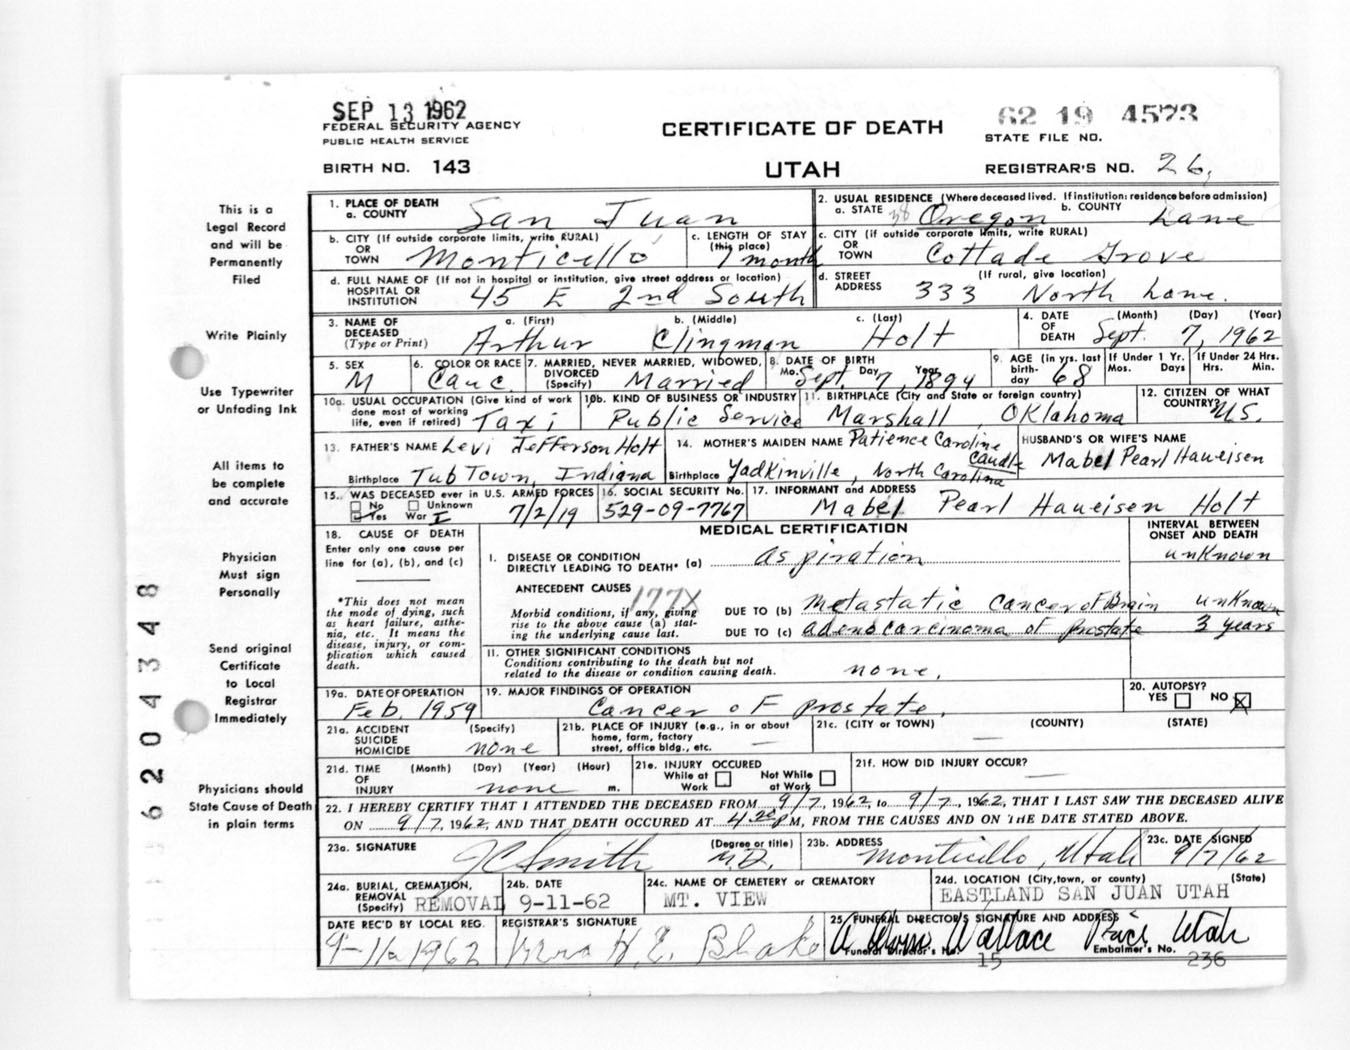 SEP 13 1962
FEDERAL SECURITY AGENCY
PUBLIC HEALTH SERVICE
BIRTH NO. 143
CERTIFICATE OF DEATH
UTAH
62 19 4573
STATE FILE NO.
REGISTRAR'S NO. 26,
This is a
Legal Record
and will be
Permanently
Filed
Write Plainly
Use Typewriter
or Unfading Ink
All items to
be complete
and accurate
Physician
Must sign
Personally
Send original
Certificate
to Local
Registrar
Immediately
Physicians should
State Cause of Death
in plain terms
6204348
1. PLACE OF DEATH
a. COUNTY San Juan
2. USUAL RESIDENCE (Where deceased lived. If institution: residence before admission)
a. STATE 38 Oregon b. COUNTY Lane
b. CITY (If outside corporate limits, write RURAL)
OR
TOWN Monticello
c. LENGTH OF STAY
(this place)
1 month
c. CITY (If outside corporate limits, write RURAL)
OR
TOWN Cottade Grove
d. FULL NAME OF (If not in hospital or institution, give street address or location)
HOSPITAL OR
INSTITUTION 45 E 2nd South
d. STREET (If rural, give location)
ADDRESS 333 North Lane.
3. NAME OF DECEASED (Type or Print)
a. (First) b. (Middle) c. (Last)
Arthur Clingman Holt
4. DATE OF DEATH (Month) (Day) (Year)
Sept. 7, 1962
5. SEX
M
6. COLOR OR RACE
Cauc.
7. MARRIED, NEVER MARRIED, WIDOWED,
DIVORCED
(Specify) Married
8. DATE OF BIRTH
Mo. Day Year
Sept. 7, 1894
9. AGE (in yrs. last
birth-
day 68
If Under 1 Yr.
Mos. Days
If Under 24 Hrs.
Hrs. Min.
10a. USUAL OCCUPATION (Give kind of work
done most of working
life, even if retired) Taxi
10b. KIND OF BUSINESS OR INDUSTRY
Public Service
11. BIRTHPLACE (City and State or foreign country)
Marshall, Oklahoma
12. CITIZEN OF WHAT
COUNTRY? U.S.
13. FATHER'S NAME Levi Jefferson Holt
Birthplace Tub Town, Indiana
14. MOTHER'S MAIDEN NAME Patience Caroline
Caudle
Birthplace Yadkinville, North Carolina
HUSBAND'S OR WIFE'S NAME
Mabel Pearl Haueisen
15. WAS DECEASED ever in U.S. ARMED FORCES
No Unknown
Yes War I 7/2/19
16. SOCIAL SECURITY No.
529-09-7767
17. INFORMANT and ADDRESS
Mabel Pearl Haueisen Holt
18. CAUSE OF DEATH
Enter only one cause per
line for (a), (b), and (c)
*This does not mean
the mode of dying, such
as heart failure, asthe-
nia, etc. It means the
disease, injury, or com-
plication which caused
death.
MEDICAL CERTIFICATION
INTERVAL BETWEEN
ONSET AND DEATH
I. DISEASE OR CONDITION
DIRECTLY LEADING TO DEATH* (a) aspiration unknown
ANTECEDENT CAUSES 177X
Morbid conditions, if any, giving
rise to the above cause (a) stat-
ing the underlying cause last.
DUE TO (b) Metastatic Cancer of Brain unknown
DUE TO (c) adenocarcinoma of prostate 3 years
11. OTHER SIGNIFICANT CONDITIONS
Conditions contributing to the death but not
related to the disease or condition causing death. none.
19a. DATE OF OPERATION
Feb. 1959
19. MAJOR FINDINGS OF OPERATION
Cancer of prostate.
20. AUTOPSY?
YES NO X
21a. ACCIDENT (Specify)
SUICIDE
HOMICIDE none
21b. PLACE OF INJURY (e.g., in or about
home, farm, factory
street, office bldg., etc. —
21c. (CITY or TOWN) (COUNTY) (STATE)
—
21d. TIME (Month) (Day) (Year) (Hour)
OF
INJURY none m.
21e. INJURY OCCURED
While at Work Not While at Work
21f. HOW DID INJURY OCCUR?
—
22. I HEREBY CERTIFY THAT I ATTENDED THE DECEASED FROM 9/7, 1962, to 9/7, 1962, THAT I LAST SAW THE DECEASED ALIVE
ON 9/7, 1962, AND THAT DEATH OCCURED AT 4:20 P M, FROM THE CAUSES AND ON THE DATE STATED ABOVE.
23a. SIGNATURE (Degree or title)
J C Smith M.D.
23b. ADDRESS
Monticello, Utah
23c. DATE SIGNED
9/7/62
24a. BURIAL, CREMATION,
REMOVAL
(Specify) REMOVAL
24b. DATE
9-11-62
24c. NAME OF CEMETERY or CREMATORY
MT. VIEW
24d. LOCATION (City, town, or county) (State)
EASTLAND SAN JUAN UTAH
DATE REC'D BY LOCAL REG.
9-11-1962
REGISTRAR'S SIGNATURE
Mrs H. E. Blake
25 FUNERAL DIRECTOR'S SIGNATURE AND ADDRESS
Wallace Price Utah
Funeral Director's No. 15
Embalmer's No. 236